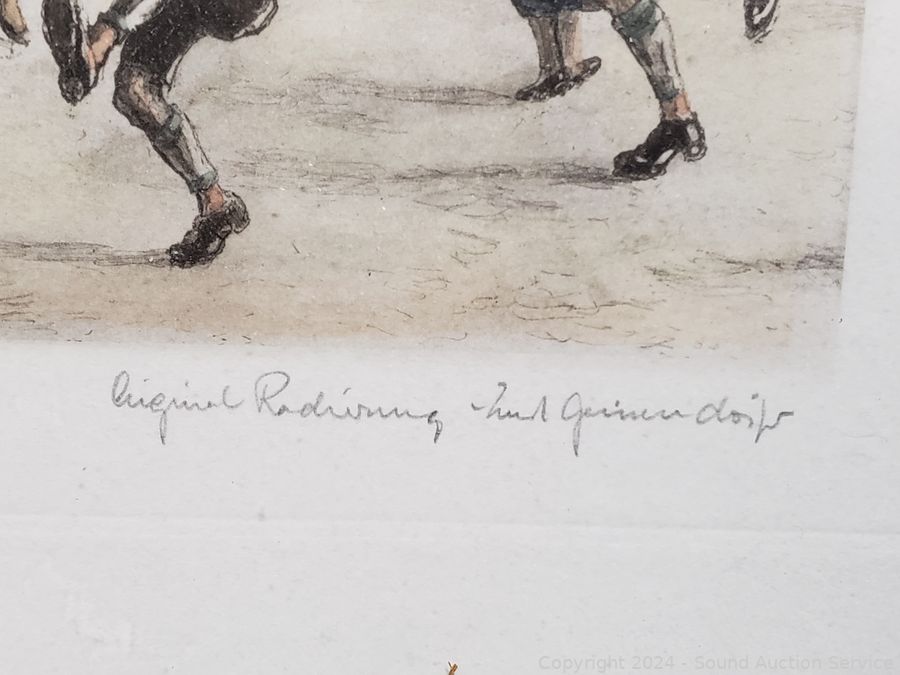 Original Radierung Ernst Geissendörfer
Copyright 2024 - Sound Auction Service